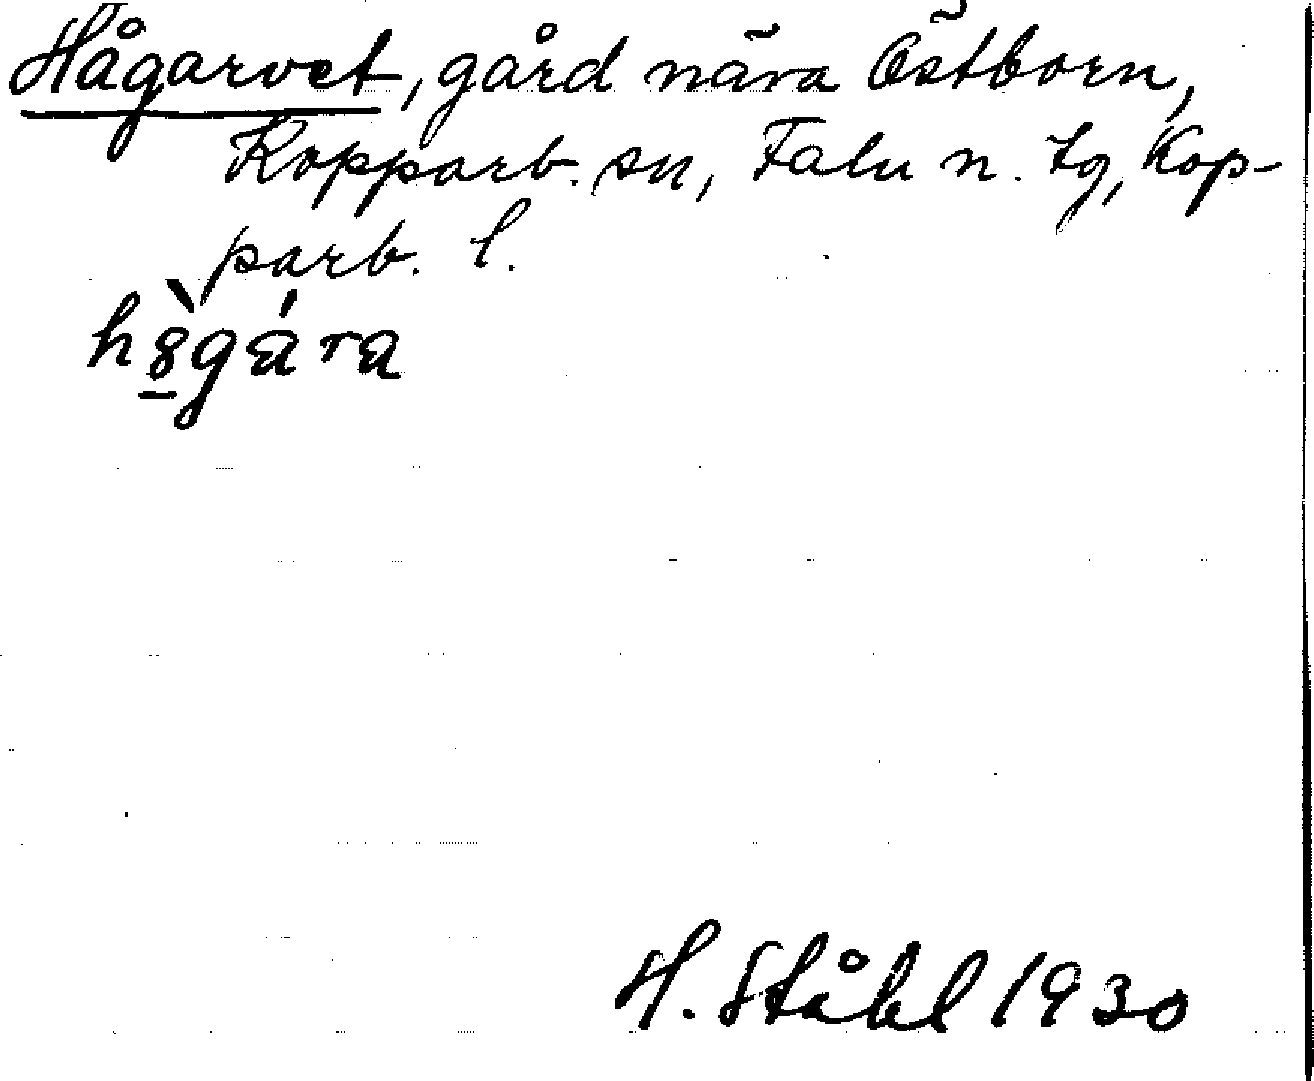 Hågarvet, gård nära Östborn,
Kopparb. sn, Falu n. tg, Kop-
parb. l.
h8̱̀gára
H. Ståhl 1930